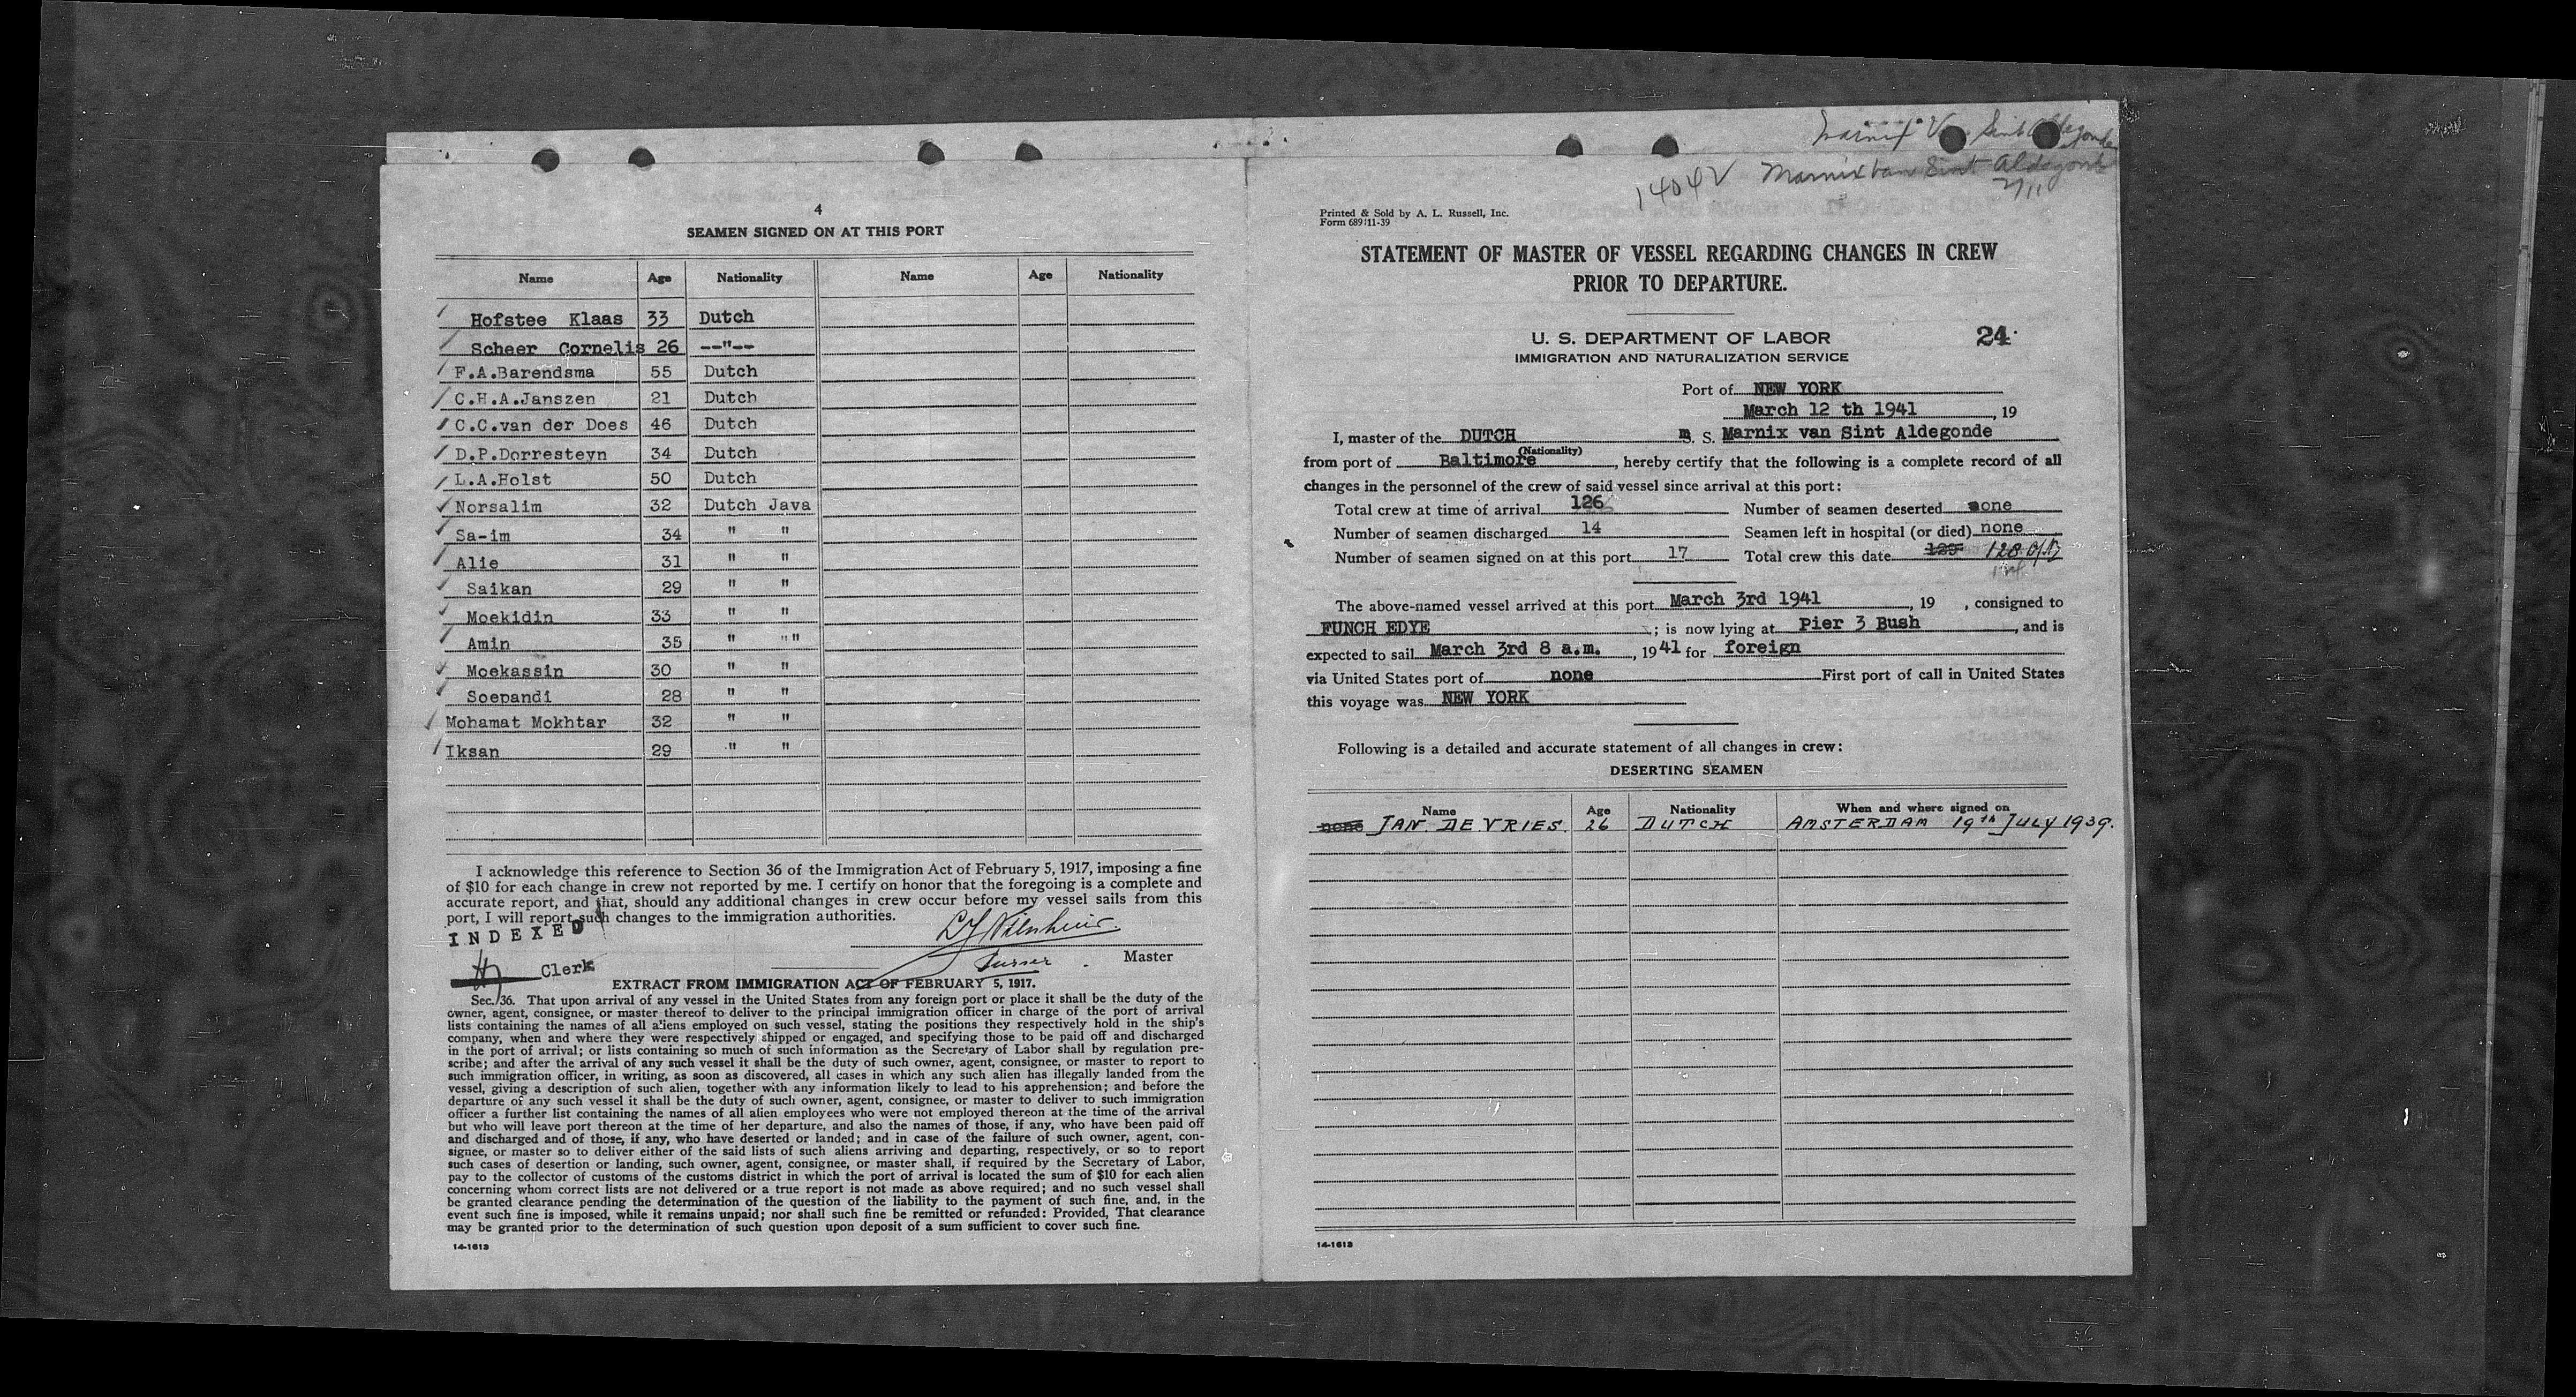 4
SEAMEN SIGNED ON AT THIS PORT
Name Age Nationality Name Age Nationality
Hofstee Klaas 33 Dutch
Scheer Cornelis 26 --"--
F.A.Barendsma 55 Dutch
C.H.A.Janszen 21 Dutch
C.C.van der Does 46 Dutch
D.P.Dorresteyn 34 Dutch
L.A.Holst 50 Dutch
Norsalim 32 Dutch Java
Sa-im 34 " "
Alie 31 " "
Saikan 29 " "
Moekidin 33 " "
Amin 35 " ""
Moekassin 30 " "
Soepandi 28 " "
Mohamat Mokhtar 32 " "
Iksan 29 " "
I acknowledge this reference to Section 36 of the Immigration Act of February 5, 1917, imposing a fine
of $10 for each change in crew not reported by me. I certify on honor that the foregoing is a complete and
accurate report, and that, should any additional changes in crew occur before my vessel sails from this
port, I will report such changes to the immigration authorities.
INDEXED
Clerk
Purser
Master
EXTRACT FROM IMMIGRATION ACT OF FEBRUARY 5, 1917.
Sec. 36. That upon arrival of any vessel in the United States from any foreign port or place it shall be the duty of the
owner, agent, consignee, or master thereof to deliver to the principal immigration officer in charge of the port of arrival
lists containing the names of all aliens employed on such vessel, stating the positions they respectively hold in the ship's
company, when and where they were respectively shipped or engaged, and specifying those to be paid off and discharged
in the port of arrival; or lists containing so much of such information as the Secretary of Labor shall by regulation pre-
scribe; and after the arrival of any such vessel it shall be the duty of such owner, agent, consignee, or master to report to
such immigration officer, in writing, as soon as discovered, all cases in which any such alien has illegally landed from the
vessel, giving a description of such alien, together with any information likely to lead to his apprehension; and before the
departure of any such vessel it shall be the duty of such owner, agent, consignee, or master to deliver to such immigration
officer a further list containing the names of all alien employees who were not employed thereon at the time of the arrival
but who will leave port thereon at the time of her departure, and also the names of those, if any, who have been paid off
and discharged and of those, if any, who have deserted or landed; and in case of the failure of such owner, agent, con-
signee, or master so to deliver either of the said lists of such aliens arriving and departing, respectively, or so to report
such cases of desertion or landing, such owner, agent, consignee, or master shall, if required by the Secretary of Labor,
pay to the collector of customs of the customs district in which the port of arrival is located the sum of $10 for each alien
concerning whom correct lists are not delivered or a true report is not made as above required; and no such vessel shall
be granted clearance pending the determination of the question of the liability to the payment of such fine, and, in the
event such fine is imposed, while it remains unpaid; nor shall such fine be remitted or refunded: Provided, That clearance
may be granted prior to the determination of such question upon deposit of a sum sufficient to cover such fine.
14-1613
Marnix V Sint Aldegonde
1404V Marnix van Sint Aldegonde
Printed & Sold by A. L. Russell, Inc.
Form 689:11-39
STATEMENT OF MASTER OF VESSEL REGARDING CHANGES IN CREW
PRIOR TO DEPARTURE.
U. S. DEPARTMENT OF LABOR 24
IMMIGRATION AND NATURALIZATION SERVICE
Port of NEW YORK
March 12 th 1941, 19
I, master of the DUTCH m. S. Marnix van Sint Aldegonde
(Nationality)
from port of Baltimore, hereby certify that the following is a complete record of all
changes in the personnel of the crew of said vessel since arrival at this port:
Total crew at time of arrival 126 Number of seamen deserted none
Number of seamen discharged 14 Seamen left in hospital (or died) none
Number of seamen signed on at this port 17 Total crew this date 129 128
The above-named vessel arrived at this port March 3rd 1941, 19 , consigned to
FUNCH EDYE ; is now lying at Pier 3 Bush, and is
expected to sail March 3rd 8 a.m., 1941 for foreign
via United States port of none First port of call in United States
this voyage was NEW YORK
Following is a detailed and accurate statement of all changes in crew:
DESERTING SEAMEN
Name Age Nationality When and where signed on
none JAN DE VRIES. 26 DUTCH AMSTERDAM 19th JULY 1939.
14-1613